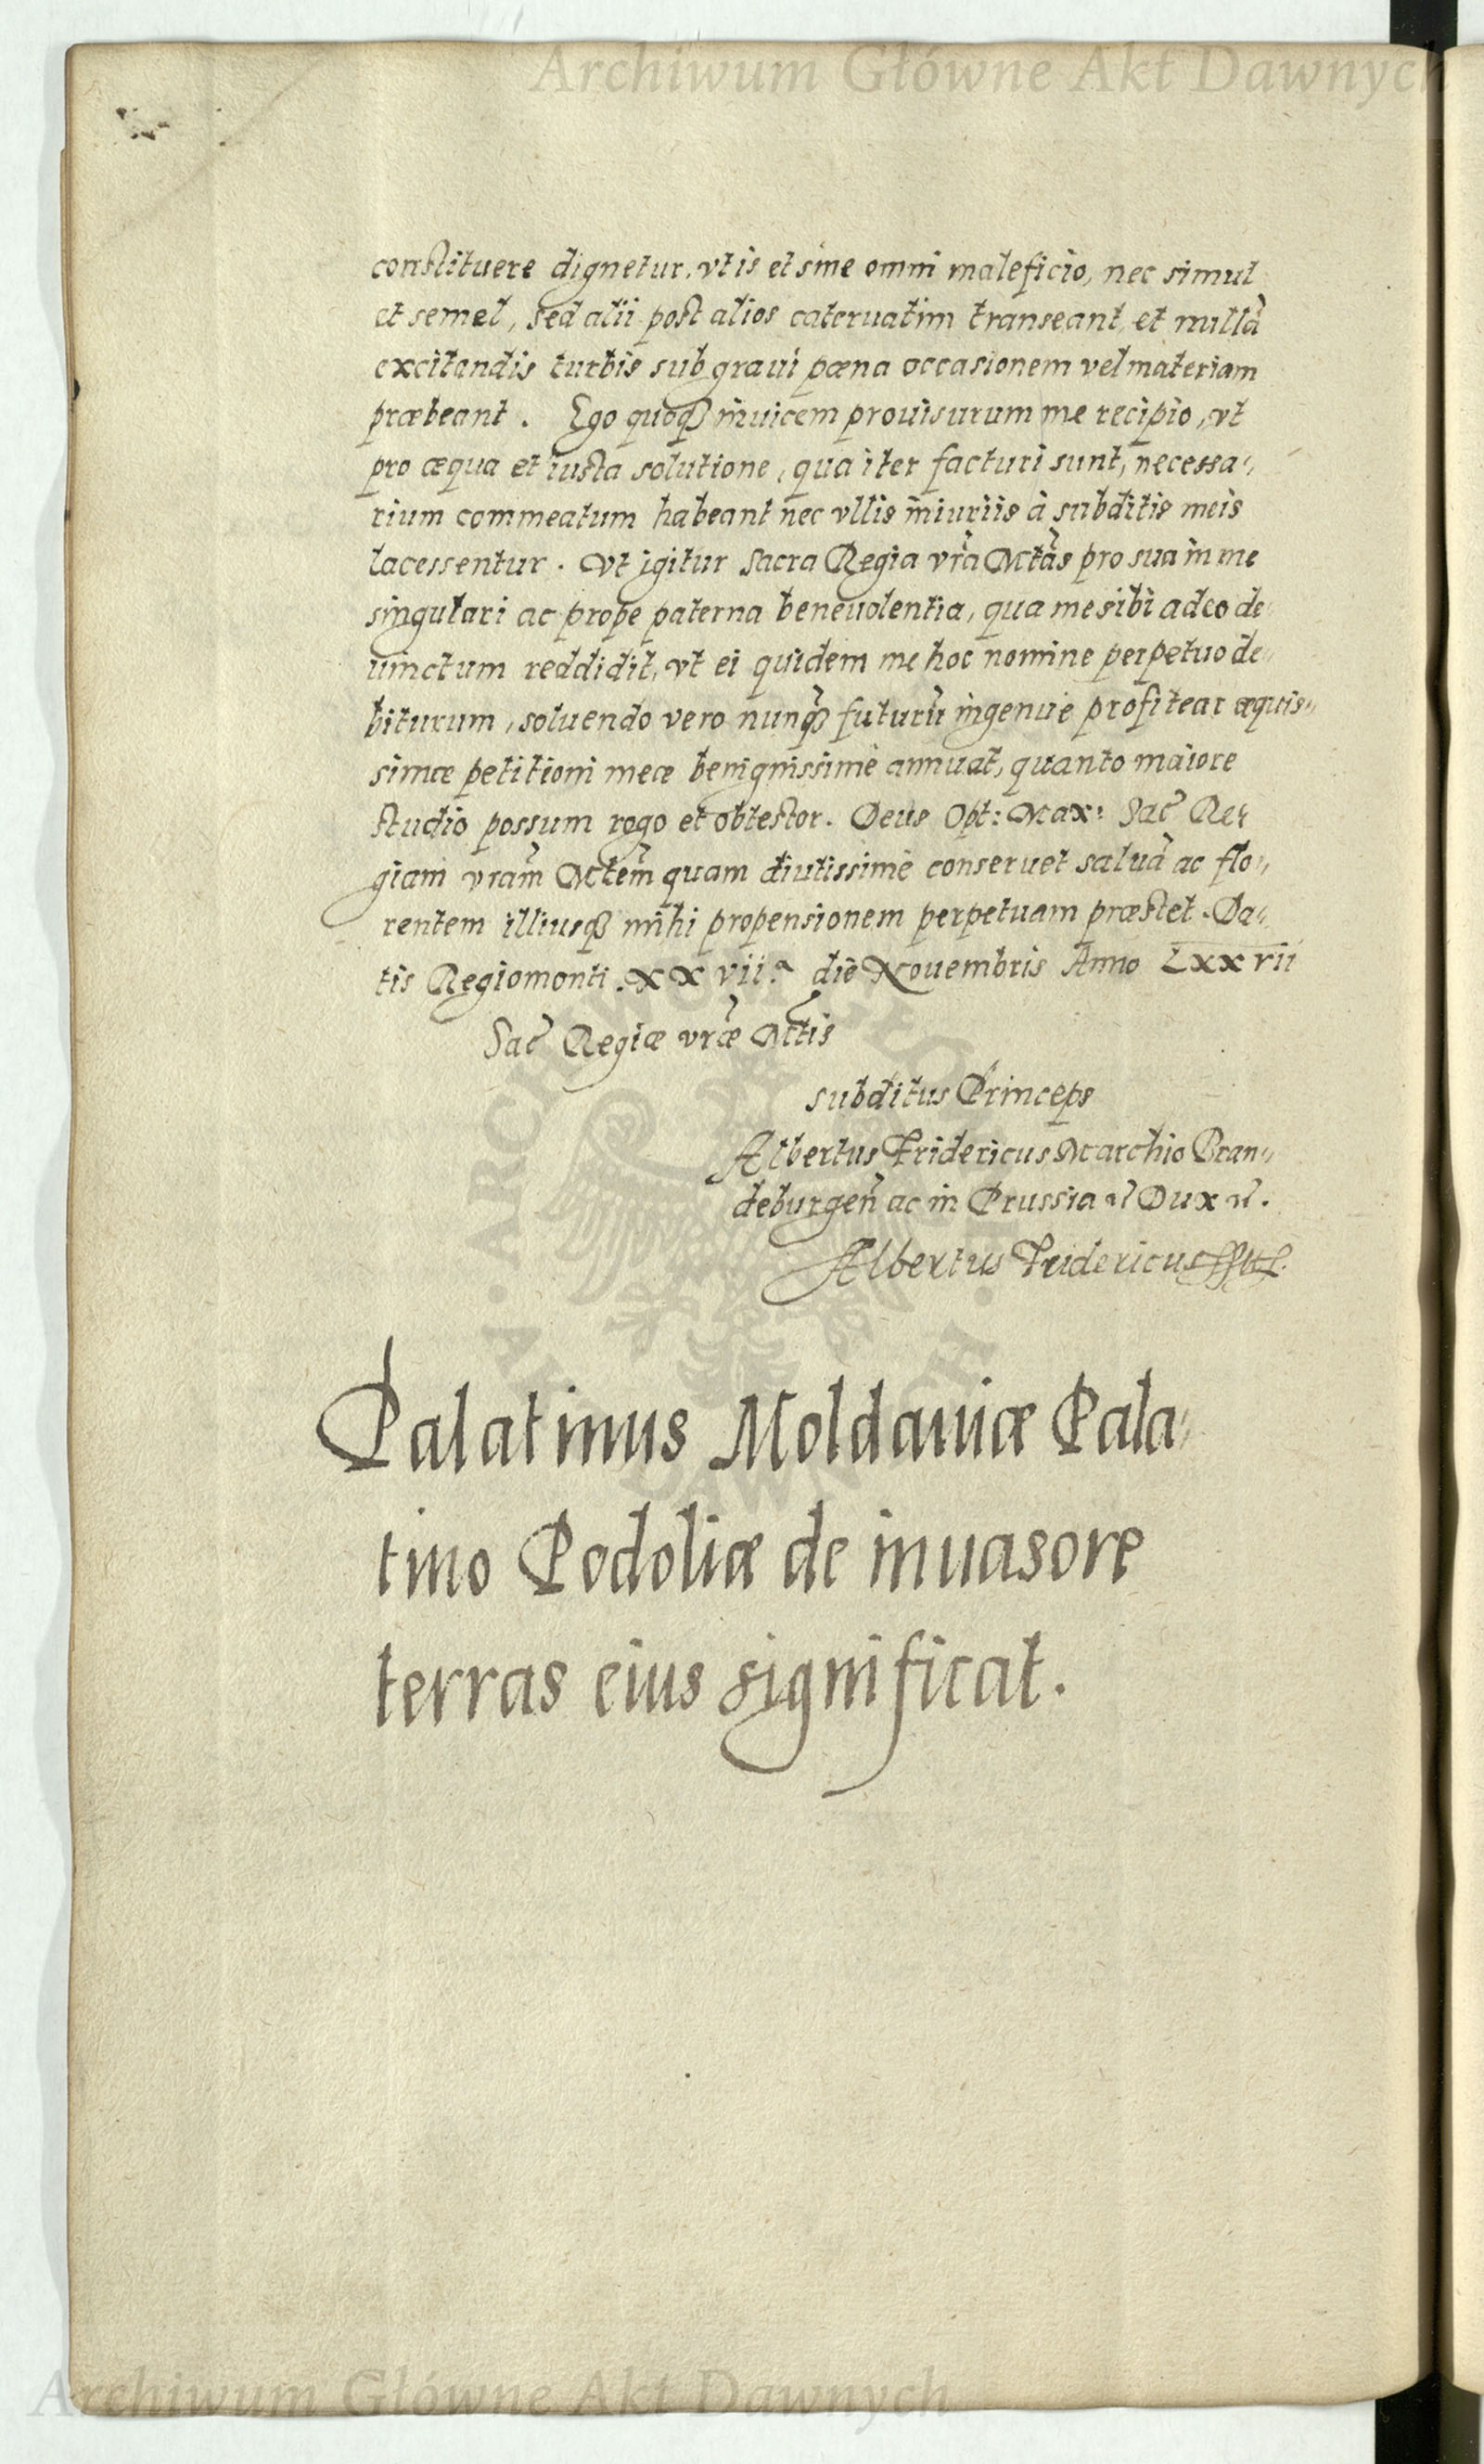 Archiwum Główne Akt Dawnych
constituere dignetur, vt is et sine omni maleficio, nec simul
et semel, sed alii post alios cateruatim transeant, et nullã
excitandis turbis sub graui pœna occasionem vel materiam
præbeant. Ego quoqȝ inuicem prouisurum me recipio, vt
pro æqua et iusta solutione, qua iter facturi sunt, necessa,,
rium commeatum habeant nec vllis iniuriis à subditis meis
lacessentur. Vt igitur Sacra Regia vra͂ Mta͂s pro sua in me
singulari ac prope paterna beneuolentia, qua me sibi adeo de
uinctum reddidit, vt ei quidem me hoc nomine perpetuo de,,
biturum, soluendo vero nunqȝ futurũ ingenue profitear æquis,,
simæ petitioni meæ benignissimè annuat, quanto maiore
studio possum rogo et obtestor. Deus Opt: Max: Sac͂ Re,,
giam vram͂ Mtem͂ quam diutissimè conseruet saluã ac flo,,
rentem illiusqȝ mihi propensionem perpetuam præstet. Da,,
tis Regiomonti. XX vii.ª die Nouembris Anno LXX vii
Sac͂ Regiæ vræ͂ Mt͂is
subditus Princeps
Albertus Fridericus Marchio Bran,,
deburgen͂ ac in Prussia etc Dux etc.
Albertus Fridericus
Palatinus Moldauiæ Pala,,
tino Podoliæ de inuasore
terras eius significat.
Archiwum Główne Akt Dawnych